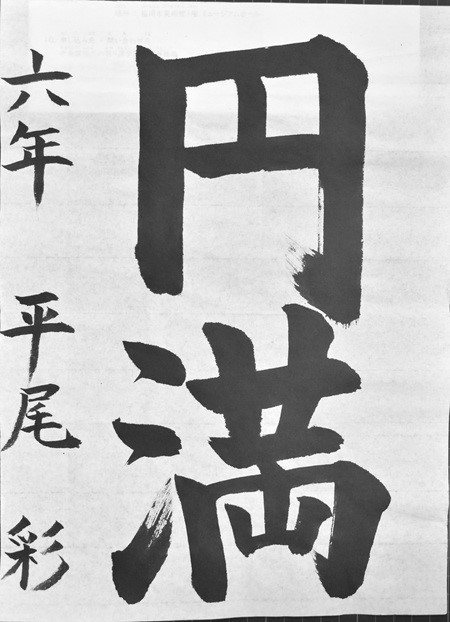 円満
六年 平尾 彩